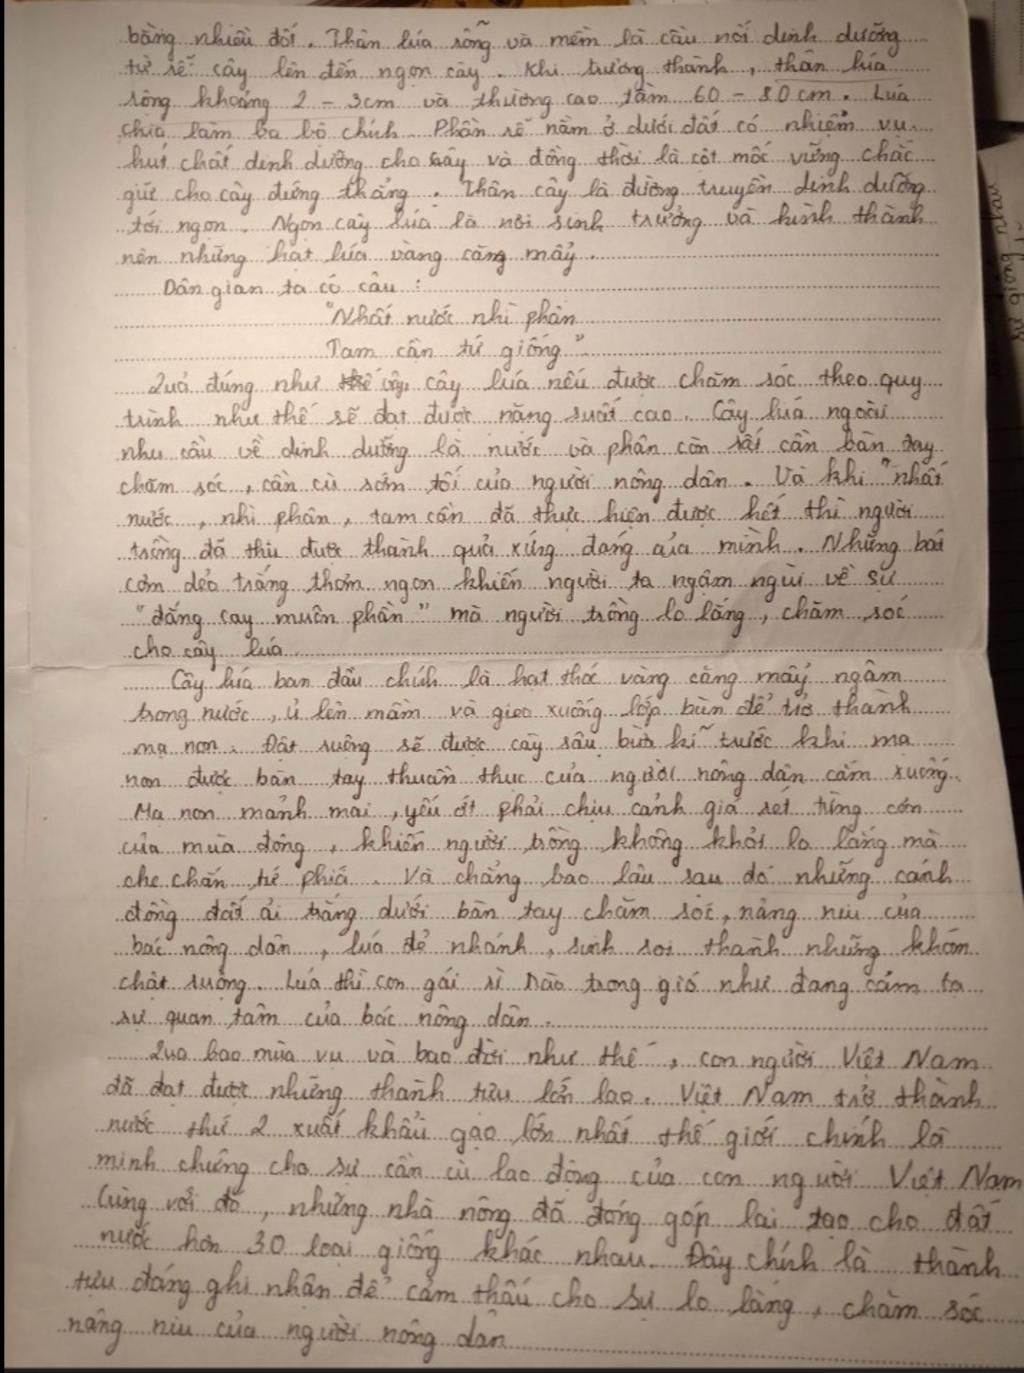 bằng nhiều đốt. Thân lúa rỗng và mềm là cầu nối dinh dưỡng
từ rễ cây lên đến ngọn cây. Khi trưởng thành, thân lúa
rộng khoảng 2 - 3cm và thường cao tầm 60 - 80cm. Lúa
chia làm ba bộ chính. Phần rễ nằm ở dưới đất có nhiệm vụ
hút chất dinh dưỡng cho cây và đồng thời là cột mốc vững chắc
giữ cho cây đứng thẳng. Thân cây là đường truyền dinh dưỡng
tới ngọn. Ngọn cây lúa là nơi sinh trưởng và hình thành
nên những hạt lúa vàng căng mẩy.
Dân gian ta có câu:
"Nhất nước nhì phân
Tam cần tứ giống"
Quả đúng như vậy cây lúa nếu được chăm sóc theo quy
trình như thế sẽ đạt được năng suất cao. Cây lúa ngoài
nhu cầu về dinh dưỡng là nước và phân còn rất cần bàn tay
chăm sóc, cần cù sớm tối của người nông dân. Và khi "nhất
nước, nhì phân, tam cần đã thực hiện được hết thì người
trồng đã thu được thành quả xứng đáng của mình. Những bát
cơm dẻo trắng thơm ngon khiến người ta ngậm ngùi về sự
"đắng cay muôn phần" mà người trồng lo lắng, chăm sóc
cho cây lúa.
Cây lúa ban đầu chính là hạt thóc vàng căng mẩy ngâm
trong nước, ủ lên mầm và gieo xuống lớp bùn để trở thành
mạ non. Đất ruộng sẽ được cày sâu bừa kĩ trước khi mạ
non được bàn tay thuần thục của người nông dân cắm xuống.
Mạ non mảnh mai, yếu ớt phải chịu cảnh giá rét từng cơn
của mùa đông, khiến người trồng không khỏi lo lắng mà
che chắn tứ phía. Và chẳng bao lâu sau đó những cánh
đồng đất ải trắng dưới bàn tay chăm sóc, nâng niu của
bác nông dân, lúa đẻ nhánh, sinh sôi thành những khóm
chật ruộng. Lúa thì con gái rì rào trong gió như đang cảm tạ
sự quan tâm của bác nông dân.
Qua bao mùa vụ và bao đời như thế, con người Việt Nam
đã đạt được những thành tựu lớn lao. Việt Nam trở thành
nước thứ 2 xuất khẩu gạo lớn nhất thế giới chính là
minh chứng cho sự cần cù lao động của con người Việt Nam
Cùng với đó, những nhà nông đã đóng góp lai tạo cho đất
nước hơn 30 loại giống khác nhau. Đây chính là thành
tựu đáng ghi nhận để cảm thấu cho sự lo lắng, chăm sóc
nâng niu của người nông dân